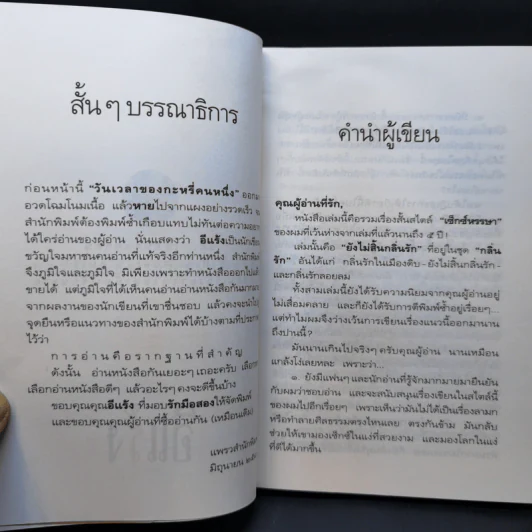 สั้น ๆ บรรณาธิการ
ก่อนหน้านี้ “วันเวลาของกะหรี่คนหนึ่ง” ออกมา
อวดโฉมโนมเนื้อ แล้วหายไปจากแผงอย่างรวดเร็ว
สำนักพิมพ์ต้องพิมพ์ซ้ำเกือบแทบไม่ทันต่อความอยาก
ได้ใคร่อ่านของผู้อ่าน นั่นแสดงว่า อีแร้งเป็นนักเขียน
ขวัญใจมหาชนคนอ่านที่แท้จริงอีกท่านหนึ่ง สำนักพิมพ์
จึงภูมิใจและภูมิใจ มิเพียงเพราะทำหนังสือออกไปแล้ว
ขายได้ แต่ภูมิใจที่ได้เห็นคนอ่านอ่านหนังสือกันมาก
จากผลงานของนักเขียนที่เขาชื่นชอบ แล้วคงจะนำไป
จุดยืนหรือแนวทางของสำนักพิมพ์ได้บ้างตามที่ประกาศ
ไว้ว่า
การอ่านคือรากฐานที่สำคัญ
ดังนั้น อ่านหนังสือกันเยอะๆ เถอะครับ เลือก
เลือกอ่านหนังสือดีๆ แล้วอะไรๆ คงจะดีขึ้นบ้าง
ขอบคุณคุณอีแร้ง ที่มอบรักมือสองให้จัดพิมพ์
และขอบคุณคุณผู้อ่านที่ซื้ออ่านกัน (เหมือนเดิม)
แพรวสำนักพิมพ์
มิถุนายน
คำนำผู้เขียน
คุณผู้อ่านที่รัก,
หนังสือเล่มนี้คือรวมเรื่องสั้นสไตล์ “เซ็กซ์หรรษา”
ของผมที่เว้นห่างจากเล่มที่แล้วนานถึง ๕ ปี!
เล่มนั้นคือ “ยังไม่สิ้นกลิ่นรัก” ที่อยู่ในชุด “กลิ่น
รัก” อันได้แก่ กลิ่นรักในเมืองดิบ-ยังไม่สิ้นกลิ่นรัก-
และกลิ่นรักลอยลม
ทั้งสามเล่มนี้ยังได้รับความนิยมจากคุณผู้อ่านอยู่
ไม่เสื่อมคลาย และก็ยังได้รับการตีพิมพ์ซ้ำอยู่เรื่อยๆ...
แต่ทำไมผมจึงว่างเว้นการเขียนเรื่องแนวนี้ออกมานาน
ถึงปานนี้?
มันนานเกินไปจริงๆ ครับคุณผู้อ่าน นานเหมือน
แกล้งโง่เลยหละ เพราะว่า...
๑. ยังมีแฟนๆ และนักอ่านที่รู้จักมากมายมายืนยัน
กับผมว่า ชอบอ่าน และจะสนับสนุนเรื่องเขียนในสไตล์นี้
ของผมไปอีกเรื่อยๆ เพราะเห็นว่ามันไม่ได้เป็นเรื่องลามก
หรือทำลายศีลธรรมตรงไหนเลย ตรงกันข้าม มันกลับ
ช่วยให้เขามองเซ็กซ์ในแง่ที่สวยงาม และมองโลกในแง่
ที่ดีได้มากขึ้น